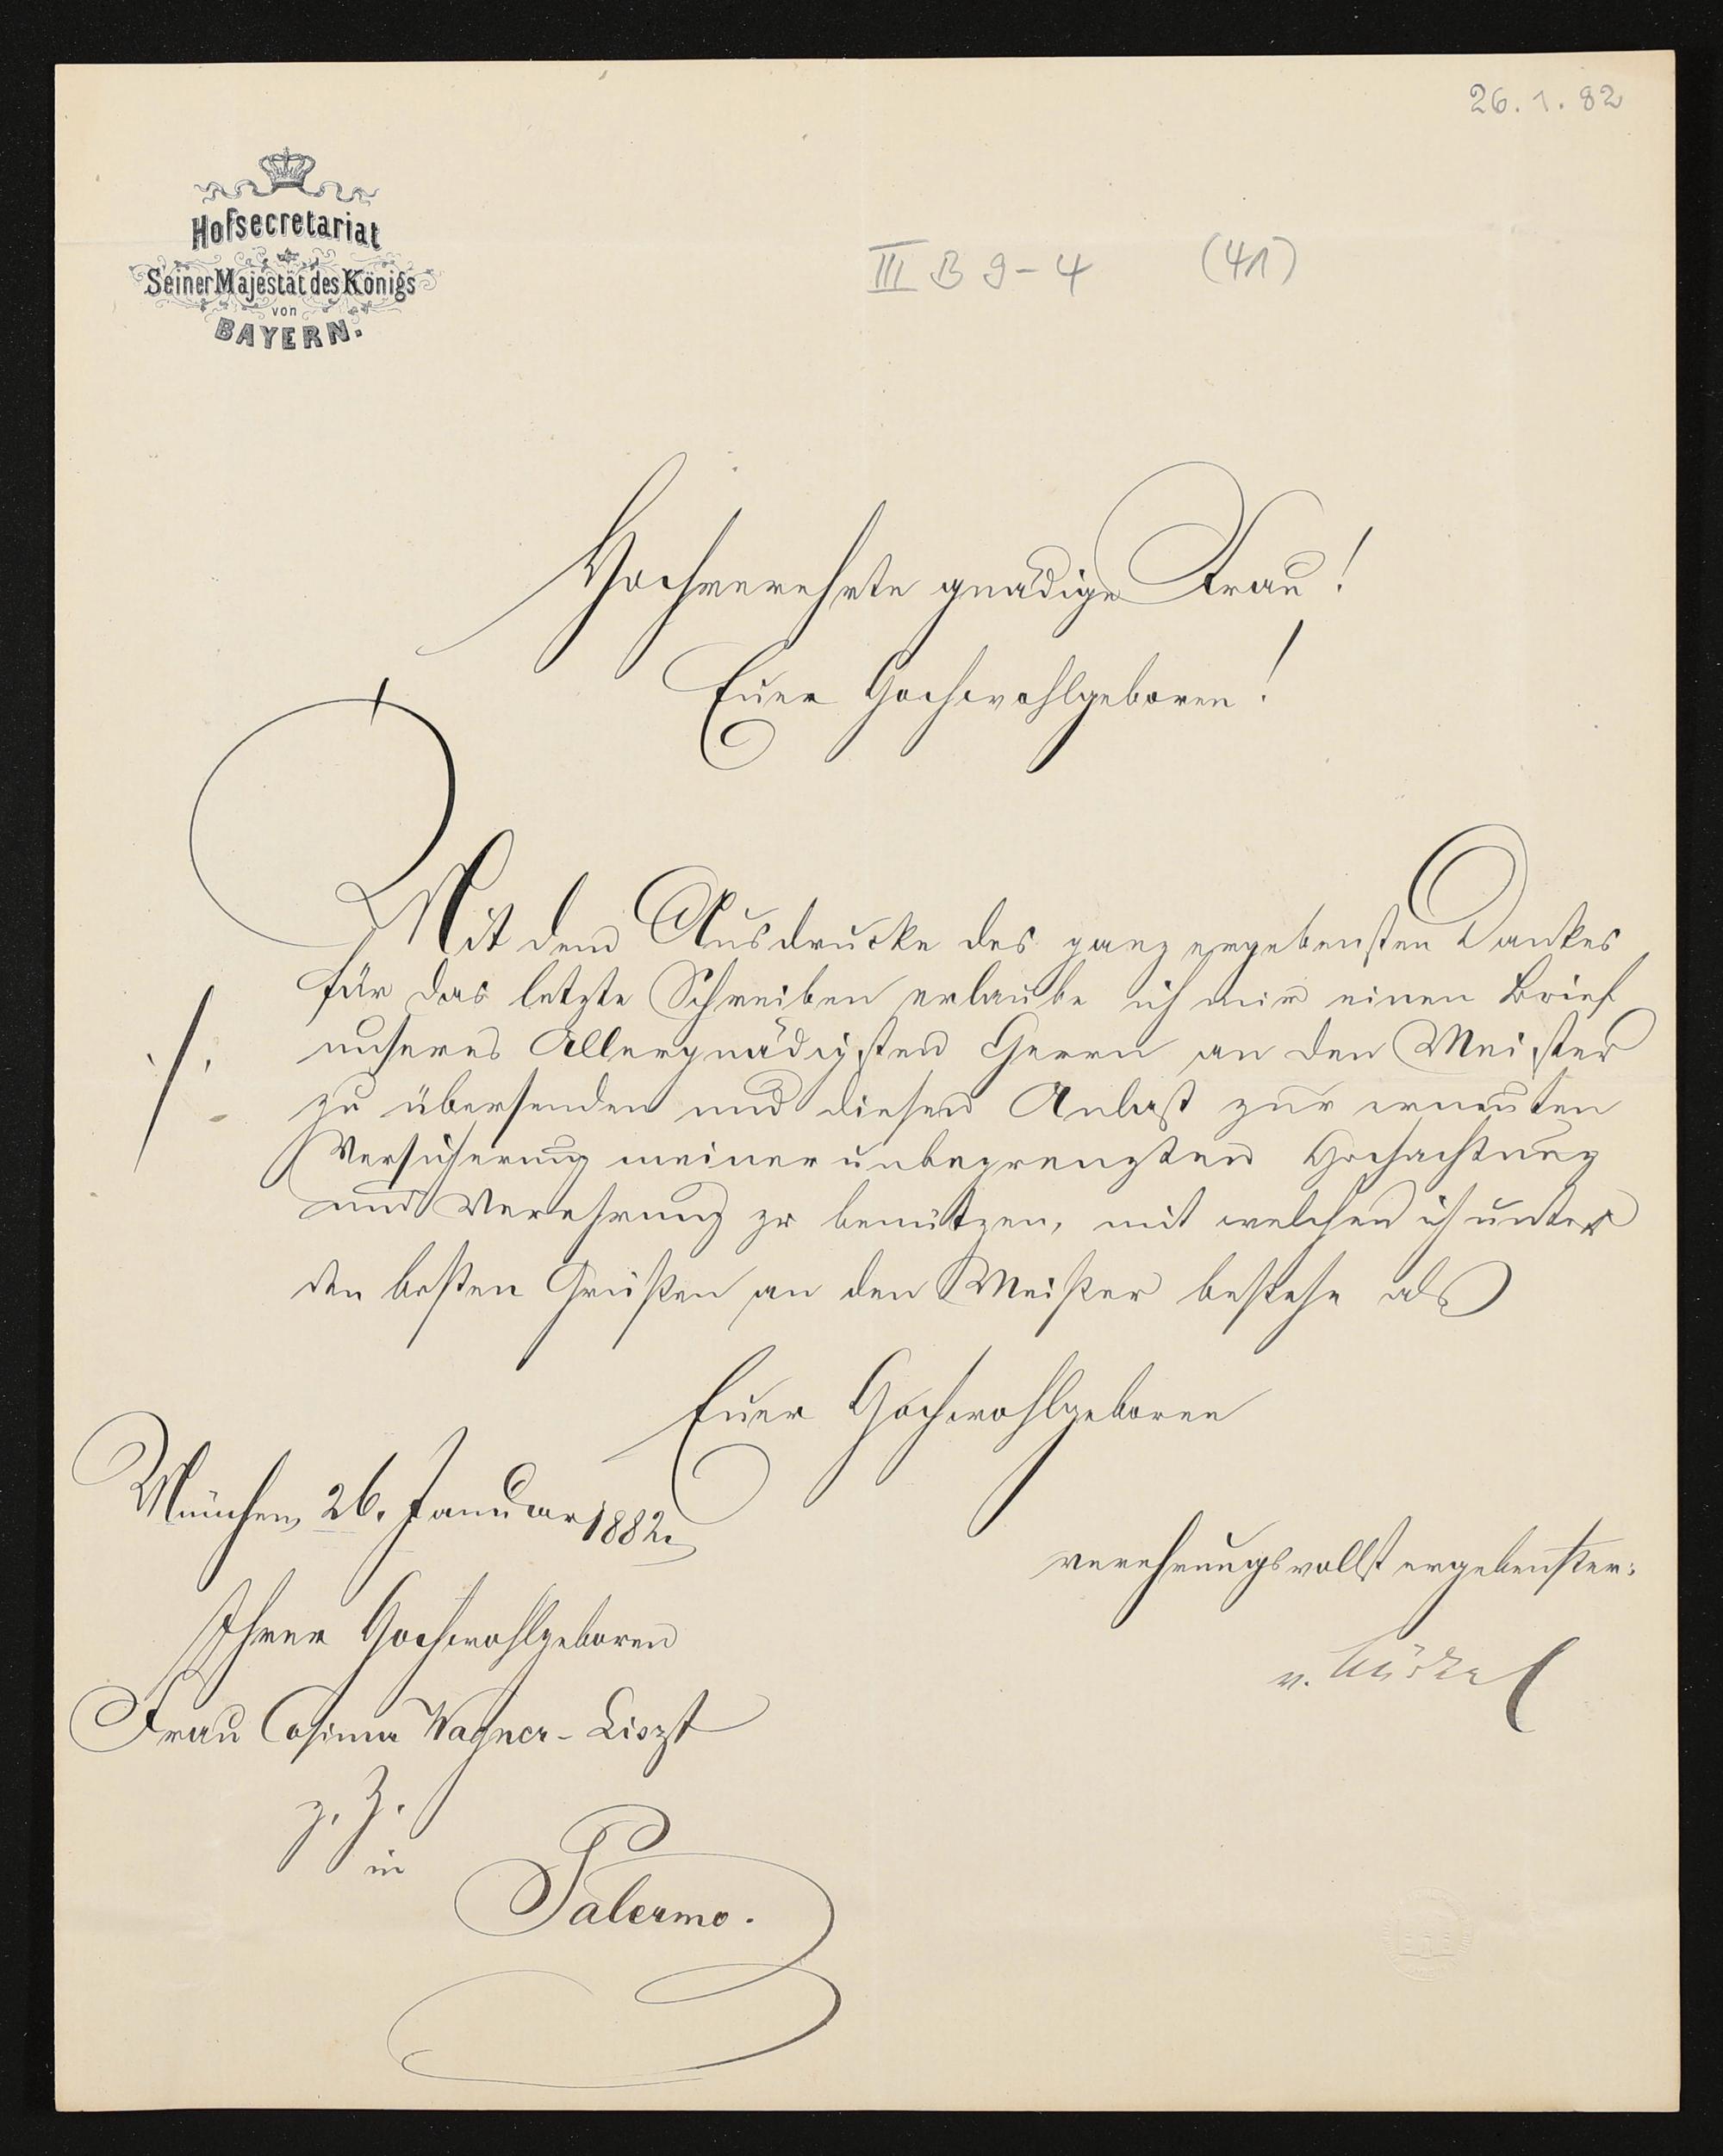 26.1.82
Hofsecretariat
Seiner Majestät des Königs
von
BAYERN.
III B 9-4 (41)
Hochverehrte gnädige Frau!
Euer Hochwohlgeboren!
Mit dem Ausdrucke des ganz ergebensten Dankes
für das letzte Schreiben erlaube ich mir einen Brief
./. unseres Allergnädigsten Herrn an den Meister
zu übersenden und diesen Anlaß zur erneuten
Versicherung meiner unbegrenzten Hochachtung
und Verehrung zu benützen, mit welchen ich unter
den besten Grüßen an den Meister bestehe als
Euer Hochwohlgeboren
München, 26. Januar 1882.
verehrungsvollst ergebenster:
v. Bürkel
Ihrer Hochwohlgeboren
Frau Cosima Wagner-Liszt
z. Z.
in
Palermo.